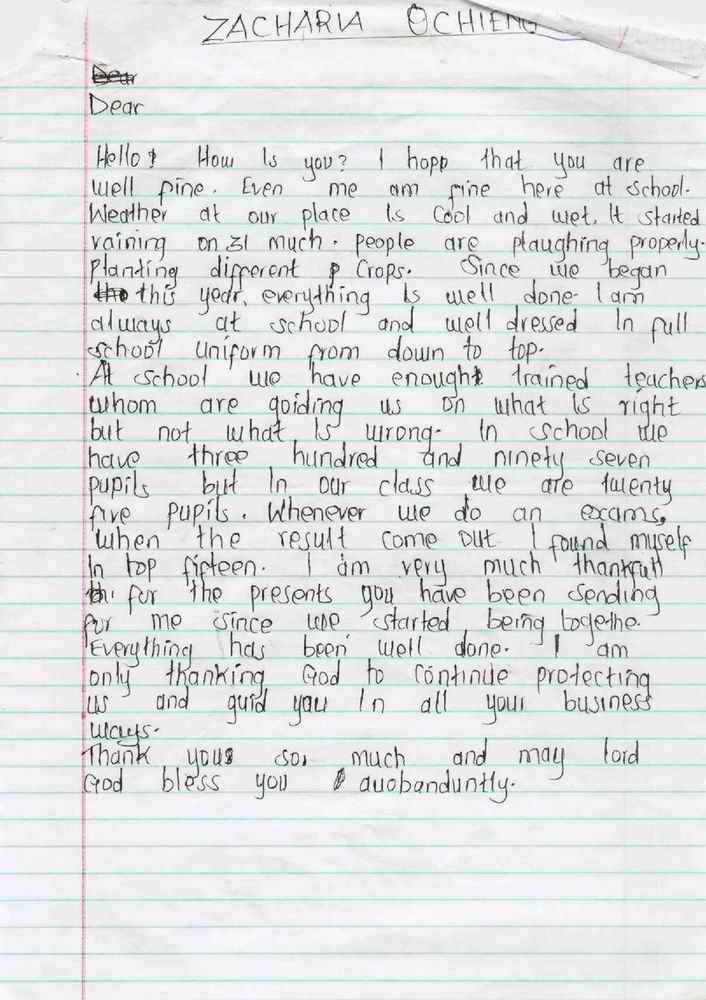 ZACHARIA OCHIENG
Dear
Dear
Hello! How Is you? I hopp that you are
well fine. Even me am fine here at school.
Weather at our place Is Cool and wet. It started
raining on 31 much. people are plaughing properly.
Planting different Crops. Since we began
this year, everything Is well done. I am
always at school and well dressed In full
school uniform from down to top.
At school we have enough trained teachers
whom are goiding us on what Is right
but not what Is wrong. In school we
have three hundred and ninety seven
pupils but In our class we are twenty
five pupils. Whenever we do an exams,
when the result come out I found myself
In top fifteen. I am very much thankful
for the presents you have been sending
for me since we started being togethe.
Everything has been well done. I am
only thanking God to continue protecting
us and guid you In all your business
ways.
Thank you so, much and may lord
God bless you auobanduntly.